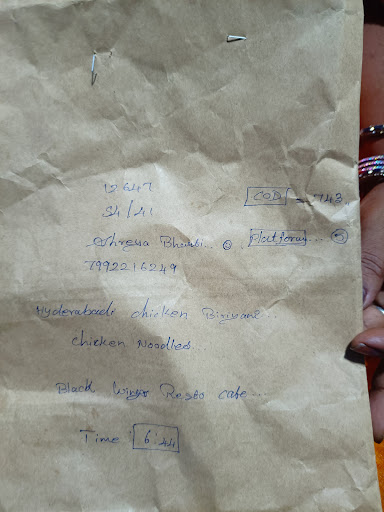 12647
S4/41
COD = 743
Shreya Bharti..
Platform...
7992216249
Hyderabadi chicken Biriyani...
chicken Noodles.
Black Wings Resto cafe...
Time: 6:44